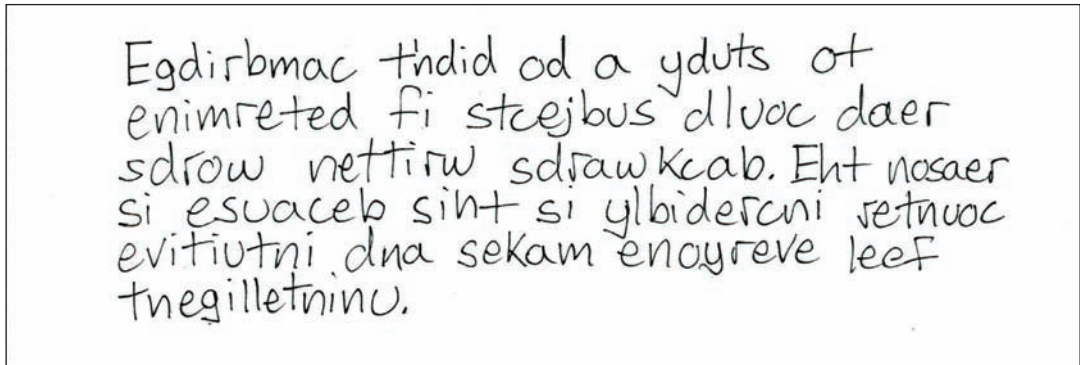 Egdirbmac t'ndid od a yduts ot
enimreted fi stcejbus dluoc daer
sdrow nettirw sdrawkcab. Eht nosaer
si esuaceb siht si ylbidercni retnuoc
evitiutni dna sekam enoyreve leef
tnegilletninu.